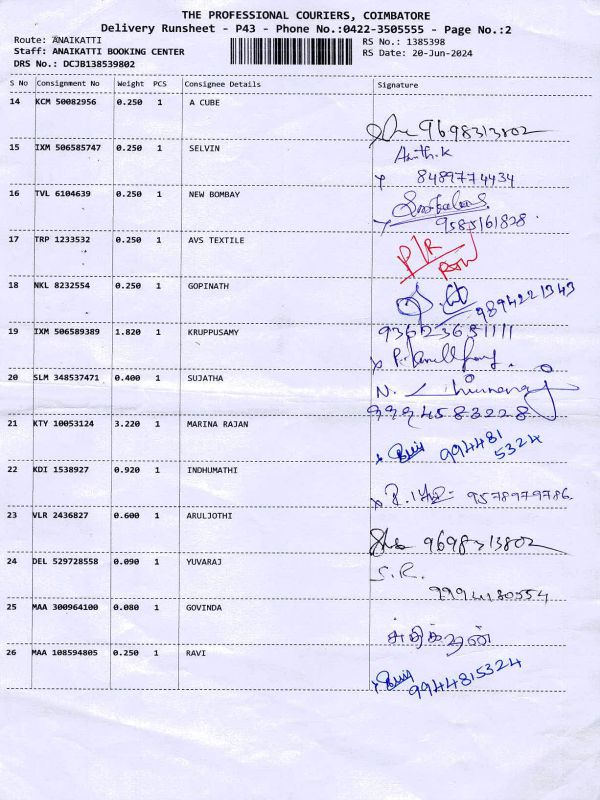 THE PROFESSIONAL COURIERS, COIMBATORE
Delivery Runsheet - P43 - Phone No.:0422-3505555 - Page No.:2
Route: ANAIKATTI
RS No.: 1385398
Staff: ANAIKATTI BOOKING CENTER
RS Date: 20-Jun-2024
DRS No.: DCJB138539802
S No Consignment No Weight PCS Consignee Details Signature
14 KCM 50082956 0.250 1 A CUBE
9698313802
15 IXM 506585747 0.250 1 SELVIN
8489774434
16 TVL 6104639 0.250 1 NEW BOMBAY
9585161828
17 TRP 1233532 0.250 1 AVS TEXTILE
P/R
18 NKL 8232554 0.250 1 GOPINATH
9894221343
19 IXM 506589389 1.820 1 KRUPPUSAMY
20 SLM 348537471 0.400 1 SUJATHA
N.
9994583228
21 KTY 10053124 3.220 1 MARINA RAJAN
994481
5324
22 KDI 1538927 0.920 1 INDHUMATHI
9578979786
23 VLR 2436827 0.600 1 ARULJOTHI
9698313802
24 DEL 529728558 0.090 1 YUVARAJ
S.R.
25 MAA 300964100 0.080 1 GOVINDA
26 MAA 108594805 0.250 1 RAVI
9944815324